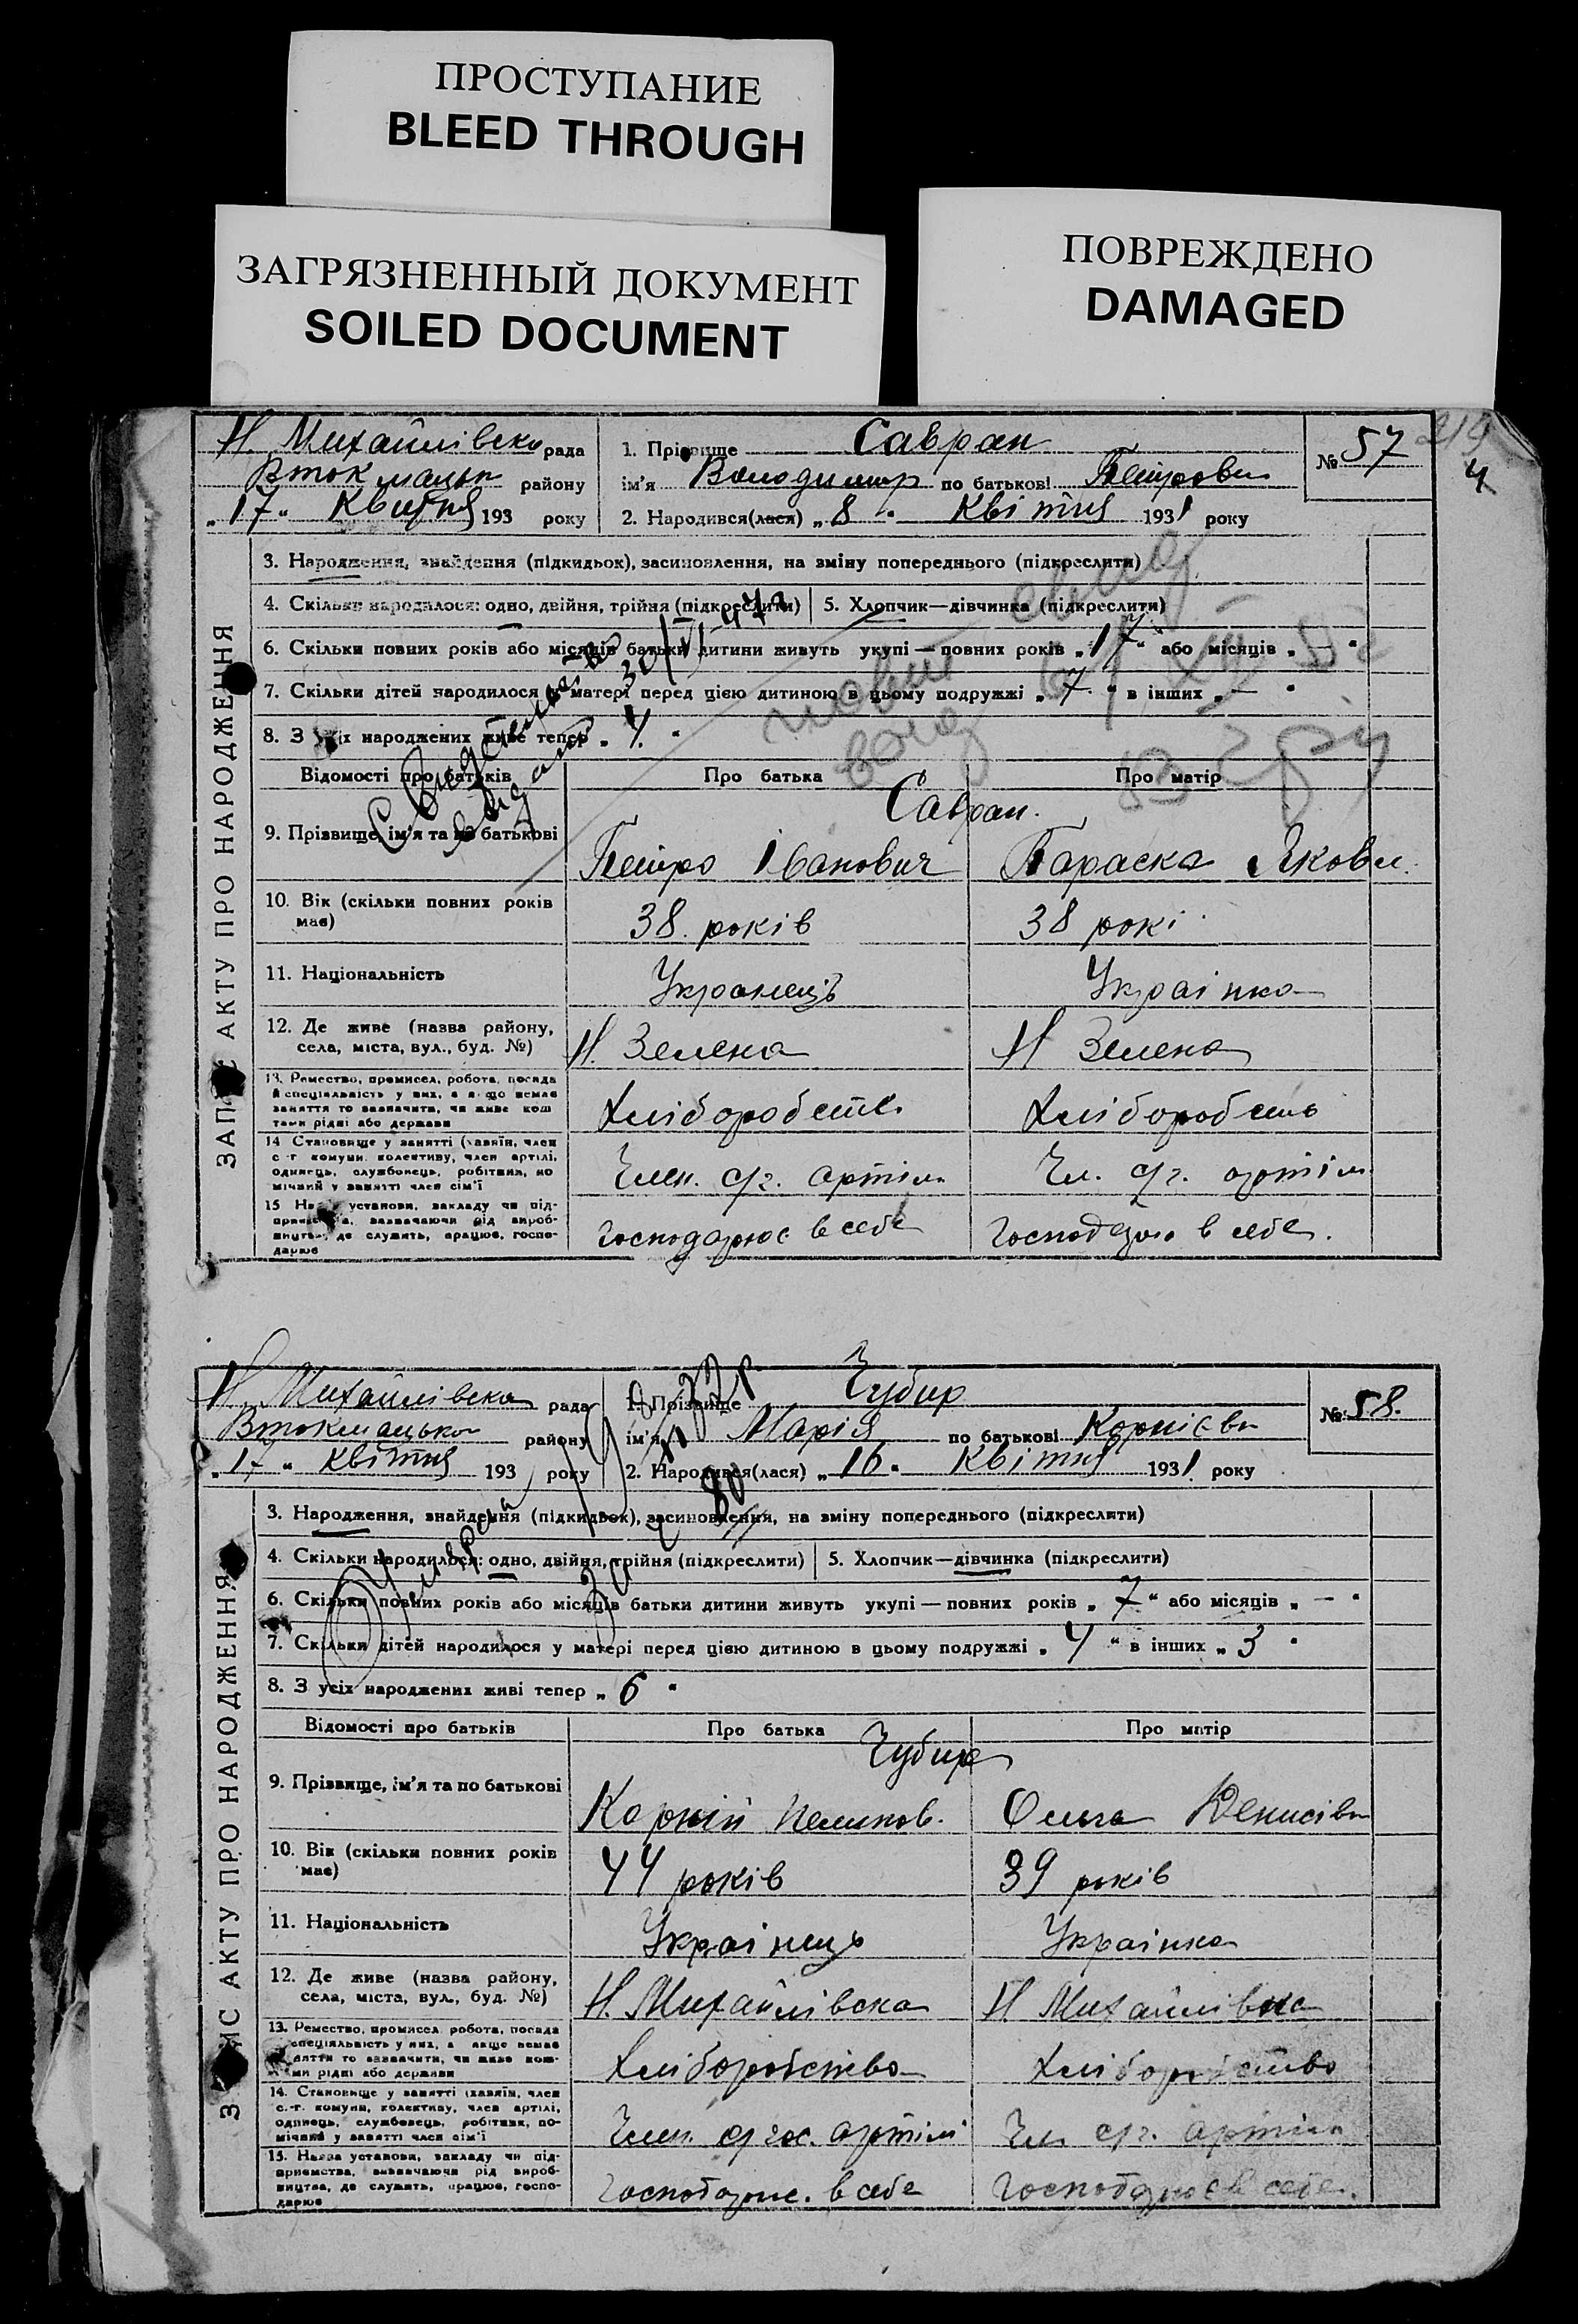 ПРОСТУПАНИЕ
BLEED THROUGH
ЗАГРЯЗНЕННЫЙ ДОКУМЕНТ
SOILED DOCUMENT
ПОВРЕЖДЕНО
DAMAGED
Н. Михайлівська рада
Вток мацьк району
„17“ Квітня 193 року
1. Прізвище Савран
ім'я Володимир по батькові Петрович
2. Народився(лася) „8“ Квітня 1931 року
№ 57
214
4
ЗАПИС АКТУ ПРО НАРОДЖЕННЯ
3. Народження, знайдення (підкидьок), засиновлення, на зміну попереднього (підкреслити)
4. Скільки народилося: одно, двійня, трійня (підкреслити) 5. Хлопчик—дівчинка (підкреслити)
6. Скільки повних років або місяців батьки дитини живуть укупі — повних років „17“ або місяців „—“
7. Скільки дітей народилося у матері перед цією дитиною в цьому подружжі „7“ в інших „—“
8. З усіх народжених живе тепер „4“
Відомості про батьків Про батька Про матір
Савран.
9. Прізвище, ім'я та по батькові Петро Іванович Параска Яковл.
10. Вік (скільки повних років має) 38 років 38 рокі
11. Національність Українець Українка
12. Де живе (назва району, села, міста, вул., буд. №) Н. Зелена Н Зелена
13. Ремество, промисел, робота, посада
й спеціяльність у них, а якщо немає
заняття то зазначити, чи живе кош
тами рідні або держави
Хліборобств. Хліборобств
14 Становище у занятті (хазяїн, член
с.-г. комуни колективу, член артілі,
одинець, службовець, робітник, по
мічний у занятті член сім'ї
Член. с/г. артіли Чл. с/г. артіли
15 Назва установи, закладу чи під-
приємства, зазначаючи рід вироб-
ництва, де служить, працює, госпо-
дарює
господарює в себе господарює в себе.
Свидетельство
выдано
30/VI-47г
Н. Михайлівська рада
Втокмацько району
„17“ Квітня 193 року
1. Прізвище Чубир
ім'я Марія по батькові Корнієвн
2. Народився(лася) „16“ Квітня 1931 року
№ 58.
ЗАПИС АКТУ ПРО НАРОДЖЕННЯ
3. Народження, знайдення (підкидьок), засиновлення, на зміну попереднього (підкреслити)
4. Скільки народилося: одно, двійня, трійня (підкреслити) 5. Хлопчик—дівчинка (підкреслити)
6. Скільки повних років або місяців батьки дитини живуть укупі — повних років „7“ або місяців „—“
7. Скільки дітей народилося у матері перед цією дитиною в цьому подружжі „4“ в інших „3“
8. З усіх народжених живі тепер „6“
Відомості про батьків Про батька Про матір
Чубир
9. Прізвище, ім'я та по батькові Корній Ольга Денисівн
10. Вік (скільки повних років має) 44 років 39 років
11. Національність Українець Українка
12. Де живе (назва району, села, міста, вул., буд. №) Н. Михайлівська Н Михайлівка
13. Ремество, промисел, робота, посада
спеціяльність у них, а якщо немає
заняття то зазначити, чи живе кош-
ми рідні або держави
Хліборобство Хліборобство
14. Становище у занятті (хазяїн, член
с.-г. комуни, колективу, член артілі,
одинець, службовець, робітник, по-
мічний у занятті член сім'ї
Член. с/гос. артілі Чл. с/г. артіли
15. Назва установи, закладу чи під-
приємства, зазначаючи рід вироб-
ництва, де служить, працює, госпо-
дарює
господарює. в себе господарює в себе.